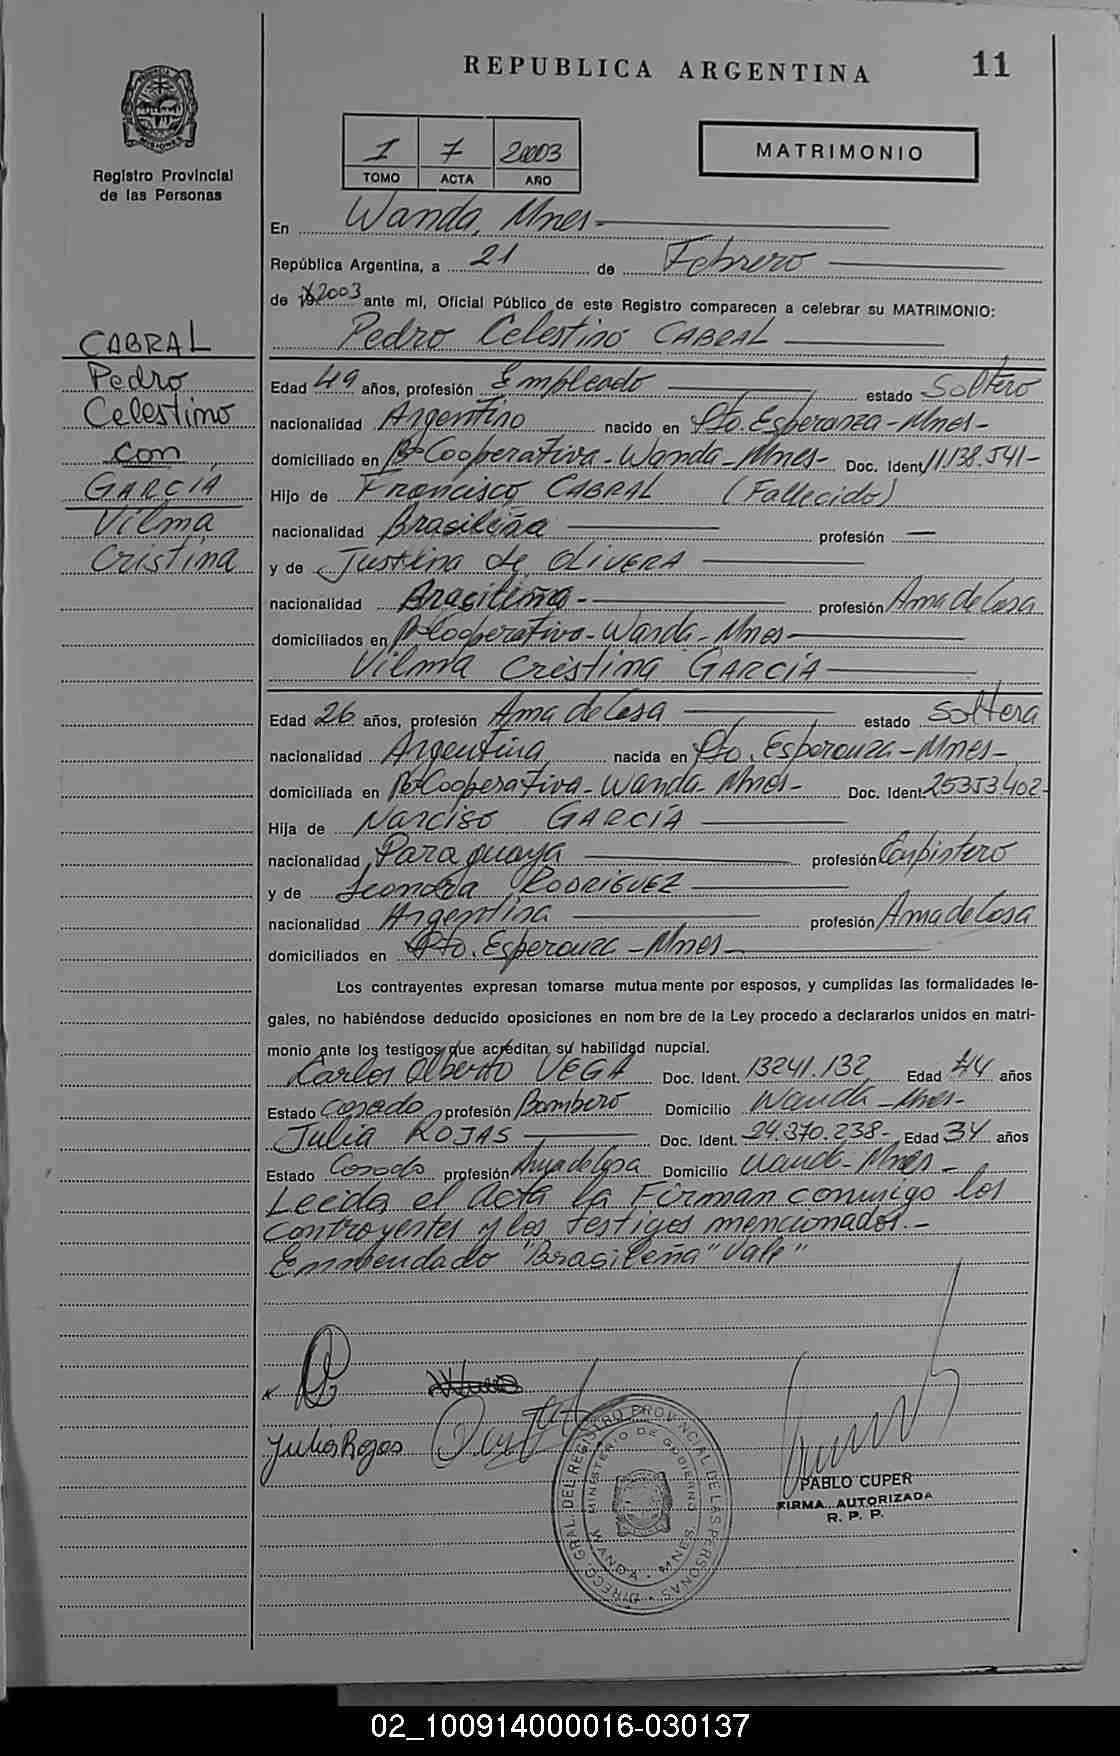 REPUBLICA ARGENTINA 11
MISIONES
Registro Provincial
de las Personas
1 7 2003
TOMO ACTA AÑO
MATRIMONIO
En Wanda, Mnes-
República Argentina, a 21 de Febrero
de 2003 ante mí, Oficial Público de este Registro comparecen a celebrar su MATRIMONIO:
Pedro Celestino CABRAL
CABRAL
Pedro
Celestino
con
GARCÍA
Vilma
Cristina
Edad 49 años, profesión Empleado estado Soltero
nacionalidad Argentino nacido en Pto. Esperanza-Mnes-
domiciliado en Bº Cooperativa-Wanda-Mnes- Doc. Ident. 11.138.541-
Hijo de Francisco CABRAL (Fallecido)
nacionalidad Brasileña profesión —
y de Justina de OLIVERA
nacionalidad Brasileña- profesión Ama de Casa
domiciliados en Bº Cooperativa-Wanda-Mnes-
Vilma Cristina GARCÍA
Edad 26 años, profesión Ama de Casa estado Soltera
nacionalidad Argentina nacida en Pto. Esperanza-Mnes-
domiciliada en Bº Cooperativa-Wanda-Mnes- Doc. Ident. 25353.402-
Hija de Narciso GARCÍA
nacionalidad Paraguaya profesión Carpintero
y de Leonora RODRIGUEZ
nacionalidad Argentina profesión Ama de Casa
domiciliados en Pto. Esperanza-Mnes-
Los contrayentes expresan tomarse mutua mente por esposos, y cumplidas las formalidades le-
gales, no habiéndose deducido oposiciones en nom bre de la Ley procedo a declararlos unidos en matri-
monio ante los testigos que acreditan su habilidad nupcial.
Carlos Alberto VEGA Doc. Ident. 13241.132 Edad 44 años
Estado Casado profesión Bombero Domicilio Wanda-Mnes-
Julia ROJAS Doc. Ident. 24.370.238- Edad 34 años
Estado Casada profesión Ama de Casa Domicilio Wanda-Mnes-
Leida el acta la Firman conmigo los
contrayentes y los testigos mencionados.-
Enmendado "Brasileña" Vale"
Julia Rojas
DIRECC. GRAL. DEL REGISTRO PROVINCIAL DE LAS PERSONAS
MINISTERIO DE GOBIERNO
WANDA - MNES.
PABLO CUPER
FIRMA AUTORIZADA
R. P. P.
02_100914000016-030137